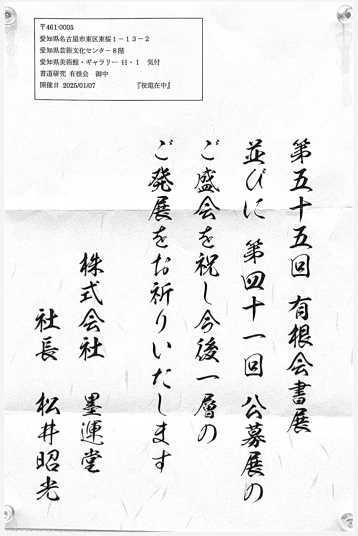 〒461-0005
愛知県名古屋市東区東桜1-13-2
愛知県芸術文化センター8階
愛知県美術館・ギャラリー H・I 気付
書道研究 有根会 御中
開催日 2025/01/07 『祝電在中』
第五十五回 有根会書展
並びに 第四十一回 公募展の
ご盛会を祝し今後一層の
ご発展をお祈りいたします
株式会社 墨運堂
社長 松井昭光